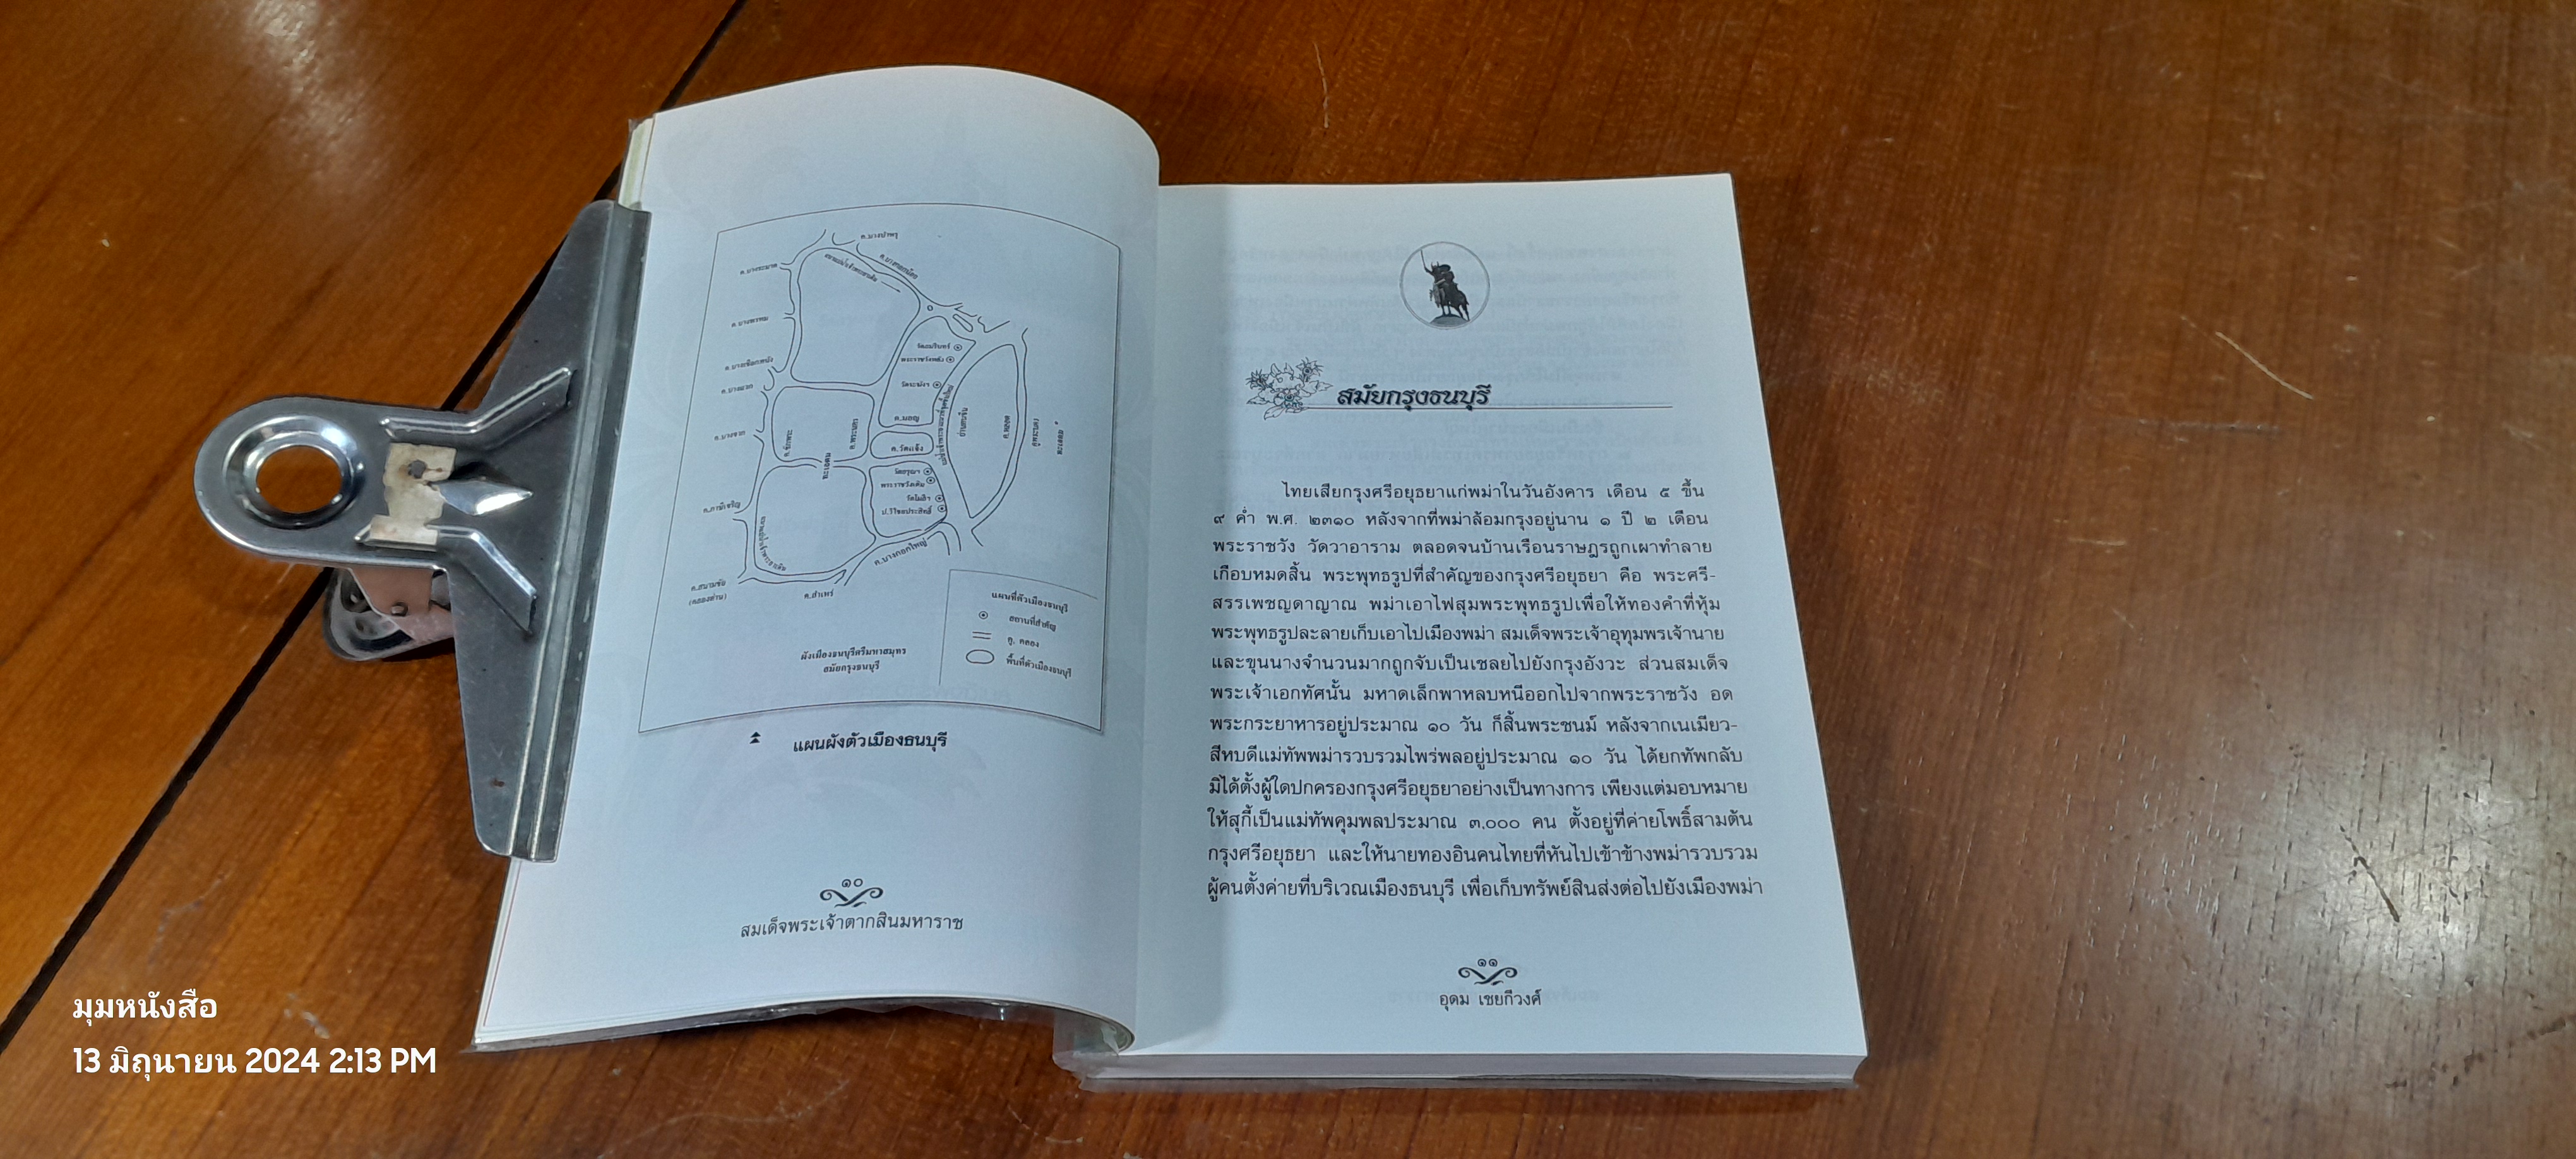 ค.บางบำหรุ
ค.บางระมาด
ค.บางกอกน้อย
ค.บางพรหม
ค.บางเชือกหนัง
ค.บางแวก
ค.บางจาก
วัดอมรินทร์
พระราชวังหลัง
วัดระฆังฯ
ค.มอญ
ค.วัดแจ้ง
วัดอรุณฯ
พระราชวังเดิม
วัดโมลีฯ
ป.วิไชยประสิทธิ์
ค.ภาษีเจริญ
ค.บางกอกใหญ่
ค.สนามชัย
(คลองด่าน)
ค.สำเหร่
แผนที่ตัวเมืองธนบุรี
สถานที่สำคัญ
คู, คลอง
พื้นที่ตัวเมืองธนบุรี
ผังเมืองธนบุรีศรีมหาสมุทร
สมัยกรุงธนบุรี
แผนผังตัวเมืองธนบุรี
๑๐
สมเด็จพระเจ้าตากสินมหาราช
สมัยกรุงธนบุรี
ไทยเสียกรุงศรีอยุธยาแก่พม่าในวันอังคาร เดือน ๕ ขึ้น
๙ ค่ำ พ.ศ. ๒๓๑๐ หลังจากที่พม่าล้อมกรุงอยู่นาน ๑ ปี ๒ เดือน
พระราชวัง วัดวาอาราม ตลอดจนบ้านเรือนราษฎรถูกเผาทำลาย
เกือบหมดสิ้น พระพุทธรูปที่สำคัญของกรุงศรีอยุธยา คือ พระศรี-
สรรเพชญดาญาณ พม่าเอาไฟสุมพระพุทธรูปเพื่อให้ทองคำที่หุ้ม
พระพุทธรูปละลายเก็บเอาไปเมืองพม่า สมเด็จพระเจ้าอุทุมพรเจ้านาย
และขุนนางจำนวนมากถูกจับเป็นเชลยไปยังกรุงอังวะ ส่วนสมเด็จ
พระเจ้าเอกทัศนั้น มหาดเล็กพาหลบหนีออกไปจากพระราชวัง อด
พระกระยาหารอยู่ประมาณ ๑๐ วัน ก็สิ้นพระชนม์ หลังจากเนเมียว-
สีหบดีแม่ทัพพม่ารวบรวมไพร่พลอยู่ประมาณ ๑๐ วัน ได้ยกทัพกลับ
มิได้ตั้งผู้ใดปกครองกรุงศรีอยุธยาอย่างเป็นทางการ เพียงแต่มอบหมาย
ให้สุกี้เป็นแม่ทัพคุมพลประมาณ ๓,๐๐๐ คน ตั้งอยู่ที่ค่ายโพธิ์สามต้น
กรุงศรีอยุธยา และให้นายทองอินคนไทยที่หันไปเข้าข้างพม่ารวบรวม
ผู้คนตั้งค่ายที่บริเวณเมืองธนบุรี เพื่อเก็บทรัพย์สินส่งต่อไปยังเมืองพม่า
๑๑
อุดม เชยกีวงศ์
มุมหนังสือ
13 มิถุนายน 2024 2:13 PM